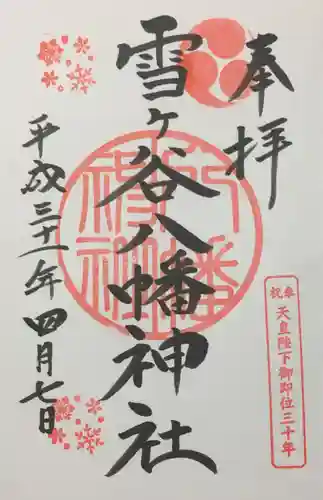 奉拝
雪ヶ谷八幡神社
平成三十一年四月七日
奉祝
天皇陛下御即位三十年